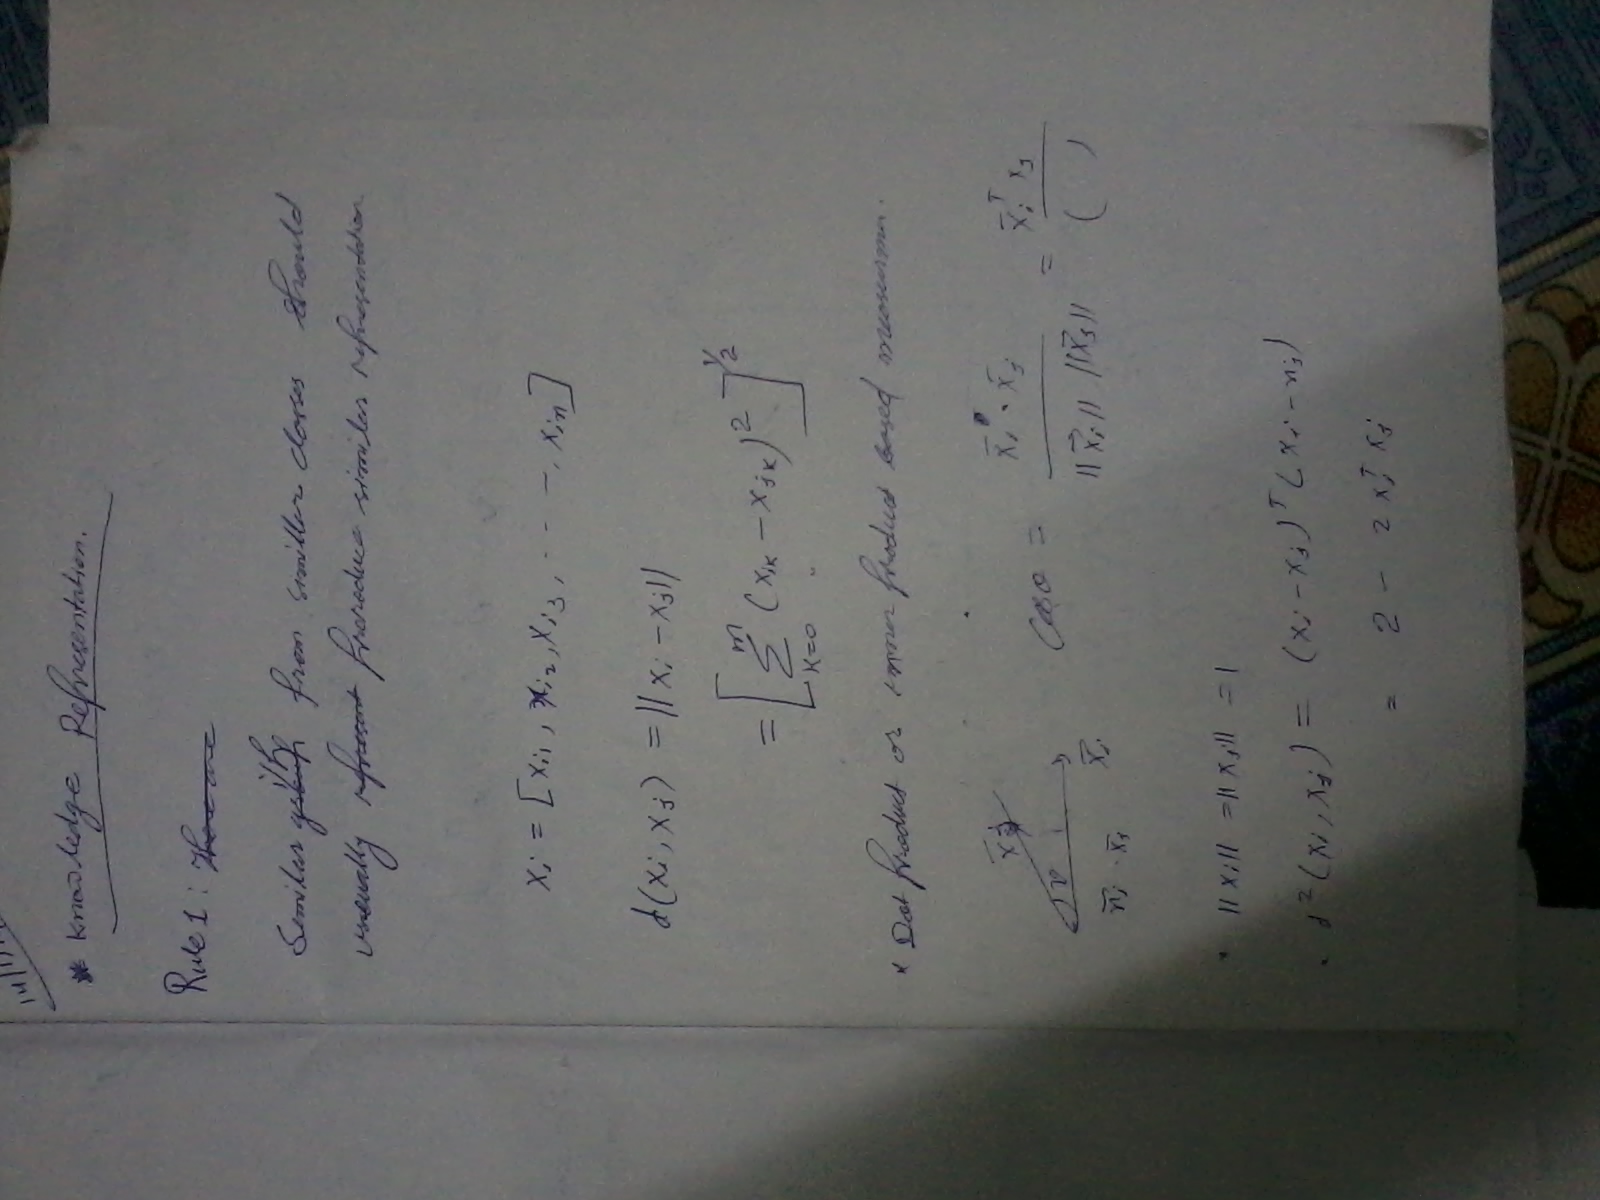 * Knowledge Representation.
Rule 1:
Similer i/p from similler classes should
usually produce similer representation
xi = [xi1, xi2, xi3, - - -, xin]
d(xi, xj) = ||xi - xj||
= [ Σ k=0 m (xik - xjk)² ]^1/2
* Dot product or inner product based
x̄j
x̄i
x̄i . x̄j
Cosθ = x̄i . x̄j / ||x̄i|| ||x̄j|| = x̄i^T xj / ( )
• ||xi|| = ||xj|| = 1
• d²(xi, xj) = (xi - xj)^T (xi - xj)
= 2 - 2 xi^T xj